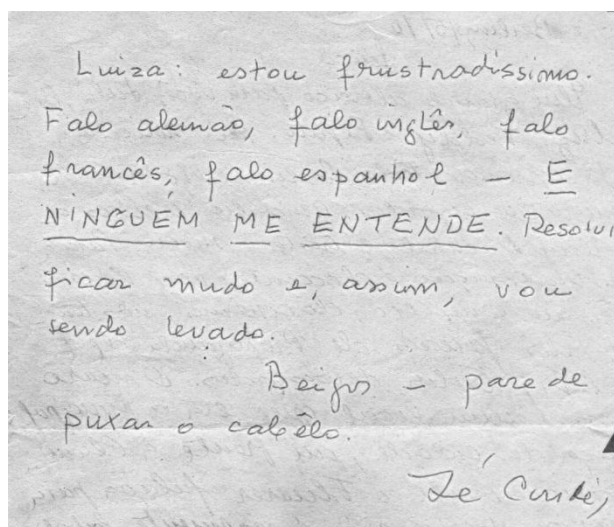 Luiza: estou frustradíssimo.
Falo alemão, falo inglês, falo
francês, falo espanhol – E
NINGUÉM ME ENTENDE. Resolvi
ficar mudo e, assim, vou
sendo levado.
Beijos – pare de
puxar o cabêlo.
Zé Condé,